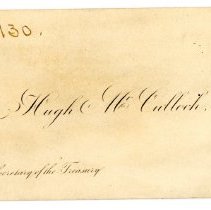 130.
Hugh McCulloch.
Secretary of the Treasury